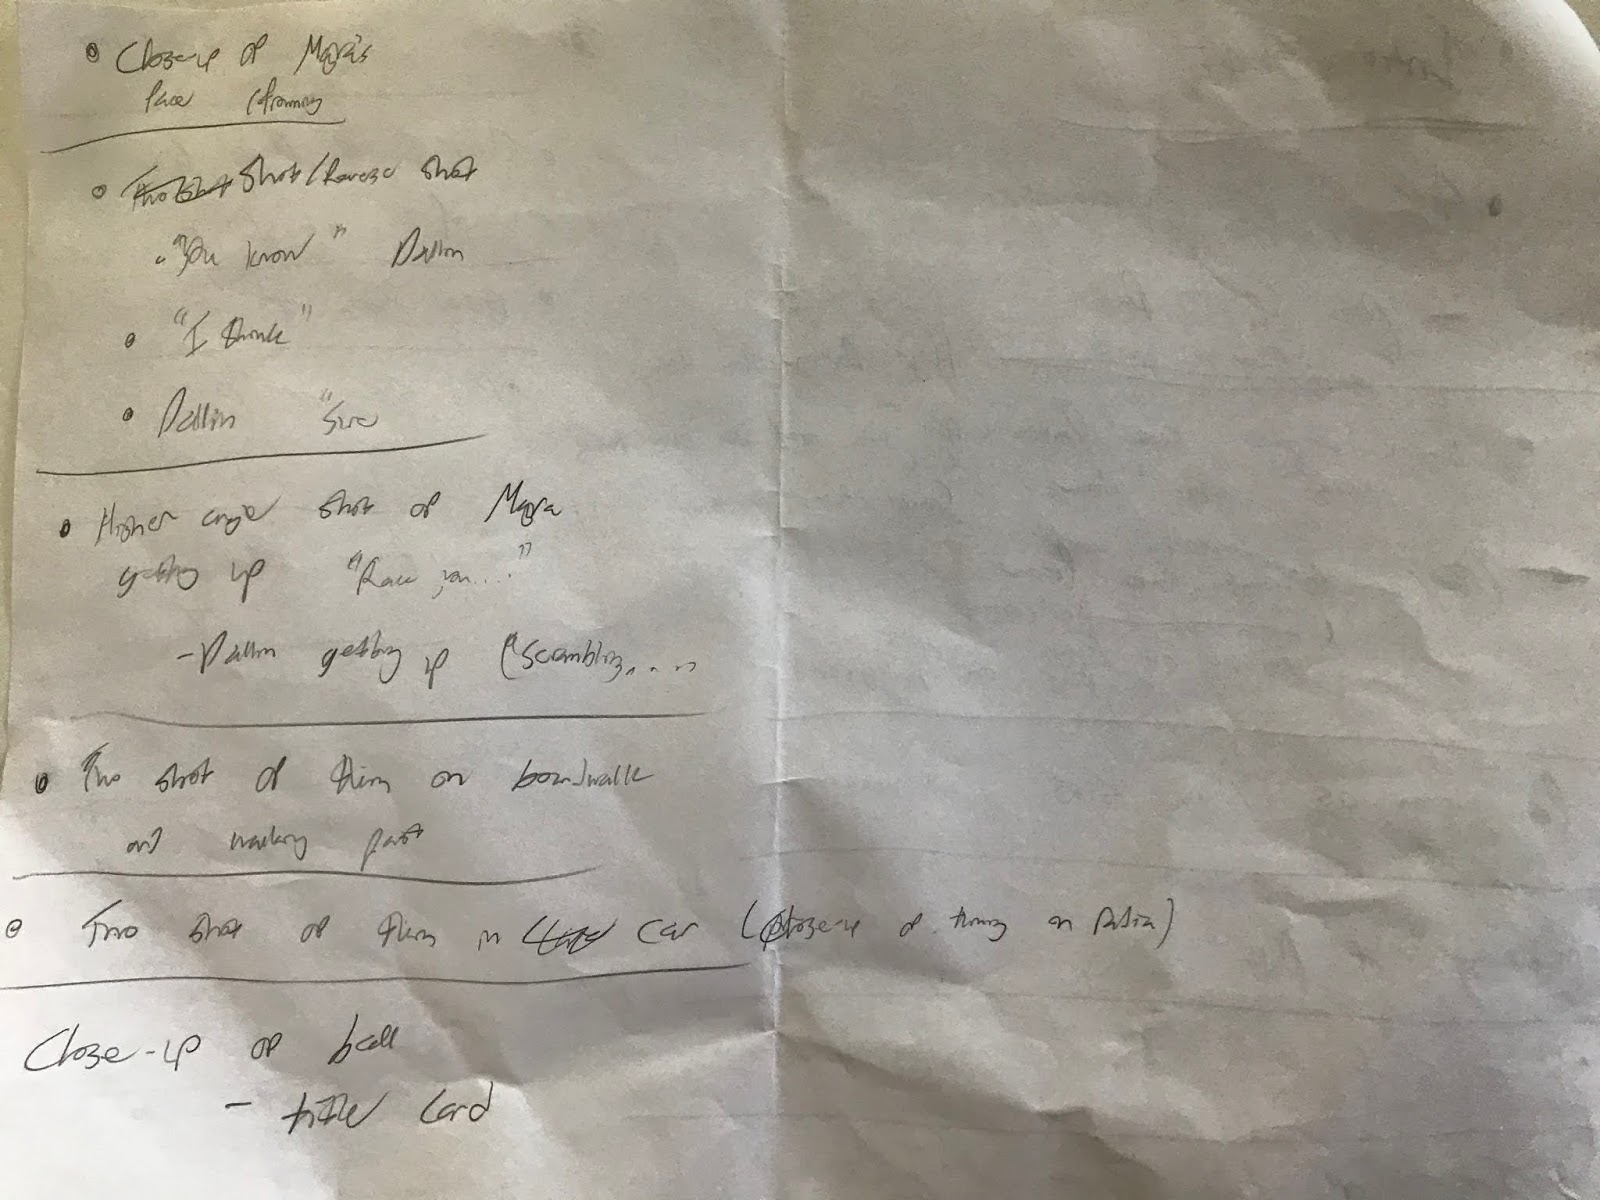 • Close-up of Mayra's
face (framing
• Two shot Shot/Reverse shot
• "You know" Dallin
• "I think"
• Dallin "Sure
• Higher angle shot of Mayra
getting up "Race you...."
- Dallin getting up ("scrambling....
• Two shot of them on boardwalk
and walking past
• Two shot of them in car (close-up of turning on radio)
Close-up of ball
- title card